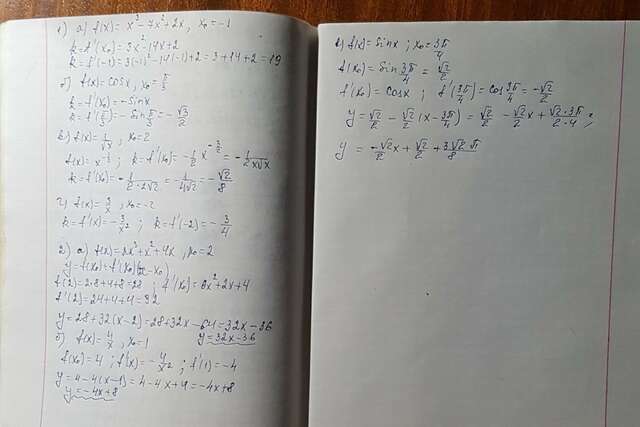 1) а) f(x) = x³ - 7x² + 2x, x₀ = -1
k = f'(x₀) = 3x² - 14x + 2
k = f'(-1) = 3(-1)² - 14(-1) + 2 = 3 + 14 + 2 = 19
б) f(x) = cosx, x₀ = π/3
k = f'(x₀) = -sinx
k = f'(π/3) = -sin π/3 = -√3/2
в) f(x) = 1/√x, x₀ = 2
f(x) = x^(-1/2); k = f'(x₀) = -1/2 x^(-3/2) = -1/(2x√x)
k = f'(x₀) = -1/(2·2√2) = -1/(4√2) = -√2/8
г) f(x) = 3/x, x₀ = -2
k = f'(x) = -3/x²; k = f'(-2) = -3/4
2) а) f(x) = 2x³ + x² + 4x, x₀ = 2
f(2) = 2·8 + 4 + 8 = 28; f'(x₀) = 6x² + 2x + 4
f'(2) = 24 + 4 + 4 = 32
y = 28 + 32(x - 2) = 28 + 32x - 64 = 32x - 36
y = 32x - 36
б) f(x) = 4/x, x₀ = 1
f(x₀) = 4; f'(x) = -4/x²; f'(1) = -4
y = 4 - 4(x - 1) = 4 - 4x + 4 = -4x + 8
y = -4x + 8
в) f(x) = sinx; x₀ = 3π/4
f(x₀) = sin 3π/4 = √2/2
f'(x₀) = cosx; f'(3π/4) = cos 3π/4 = -√2/2
y = √2/2 - √2/2 (x - 3π/4) = √2/2 - √2/2 x + √2·3π/2·4;
y = -√2/2 x + √2/2 + 3√2π/8